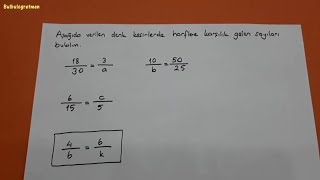 Bulbulogretmen
Aşağıda verilen denk kesirlerde harflere karşılık gelen sayıları
bulalım.
18/30 = 3/a 10/b = 50/25
6/15 = c/5
4/b = 6/k